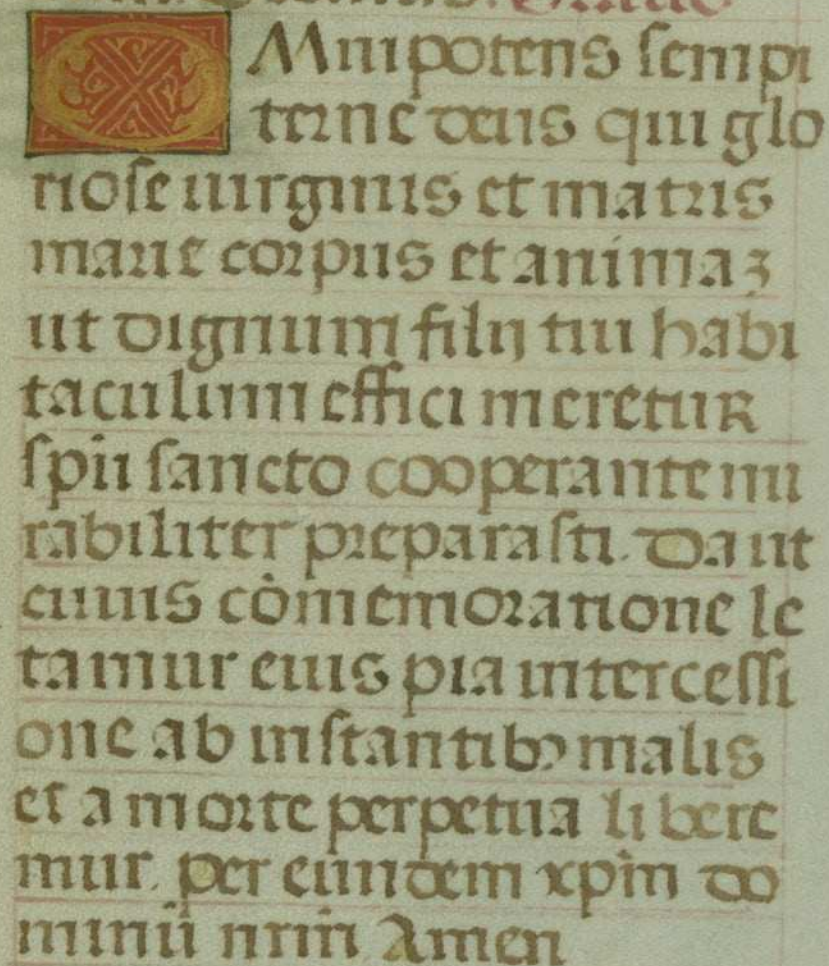 Omnipotens sempi
terne deus qui glo
riose uirginis et matris
marie corpus et animaʒ
ut dignum filij tui habi
taculum effici meretur
spū sancto cooperante mi
rabiliter preparasti. Da ut
cuius cōmemoratione le
tamur eius pia intercessi
one ab instantibꝰ malis
et a morte perpetua libere
mur. per eundem xpm̄ do
minū nrm̄ Amen